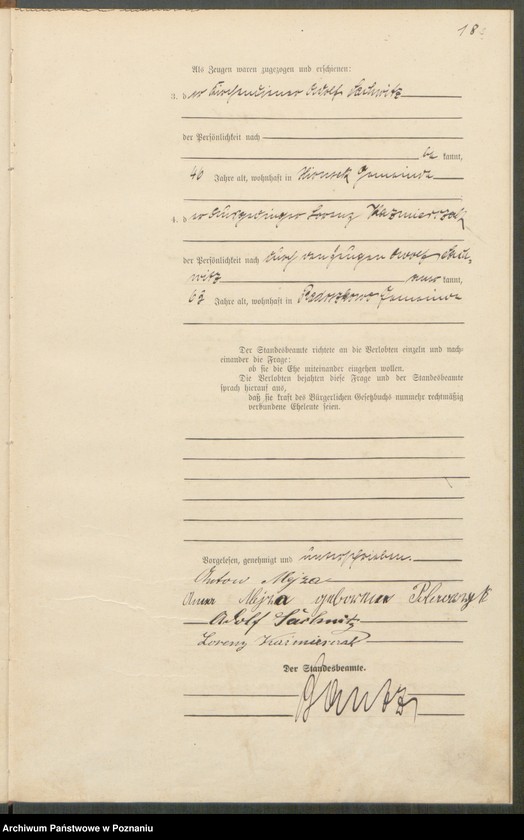 Als Zeugen waren zugezogen und erschienen:
3. der Kirchendiener Adolf
der Persönlichkeit nach
bekannt,
40 Jahre alt, wohnhaft in Gemeinde
4. der Lorenz Kazmierczak
der Persönlichkeit nach durch den Zeugen Adolf
kannt,
Jahre alt, wohnhaft in Gemeinde
Der Standesbeamte richtete an die Verlobten einzeln und nach-
einander die Frage:
ob sie die Ehe miteinander eingehen wollen.
Die Verlobten bejahten diese Frage und der Standesbeamte
sprach hierauf aus,
daß sie kraft des Bürgerlichen Gesetzbuchs nunmehr rechtmäßig
verbundene Eheleute seien.
Vorgelesen, genehmigt und unterschrieben.
Anton Mejza
Anna Mejza geborene
Adolf
Lorenz
Der Standesbeamte.
Archiwum Państwowe w Poznaniu